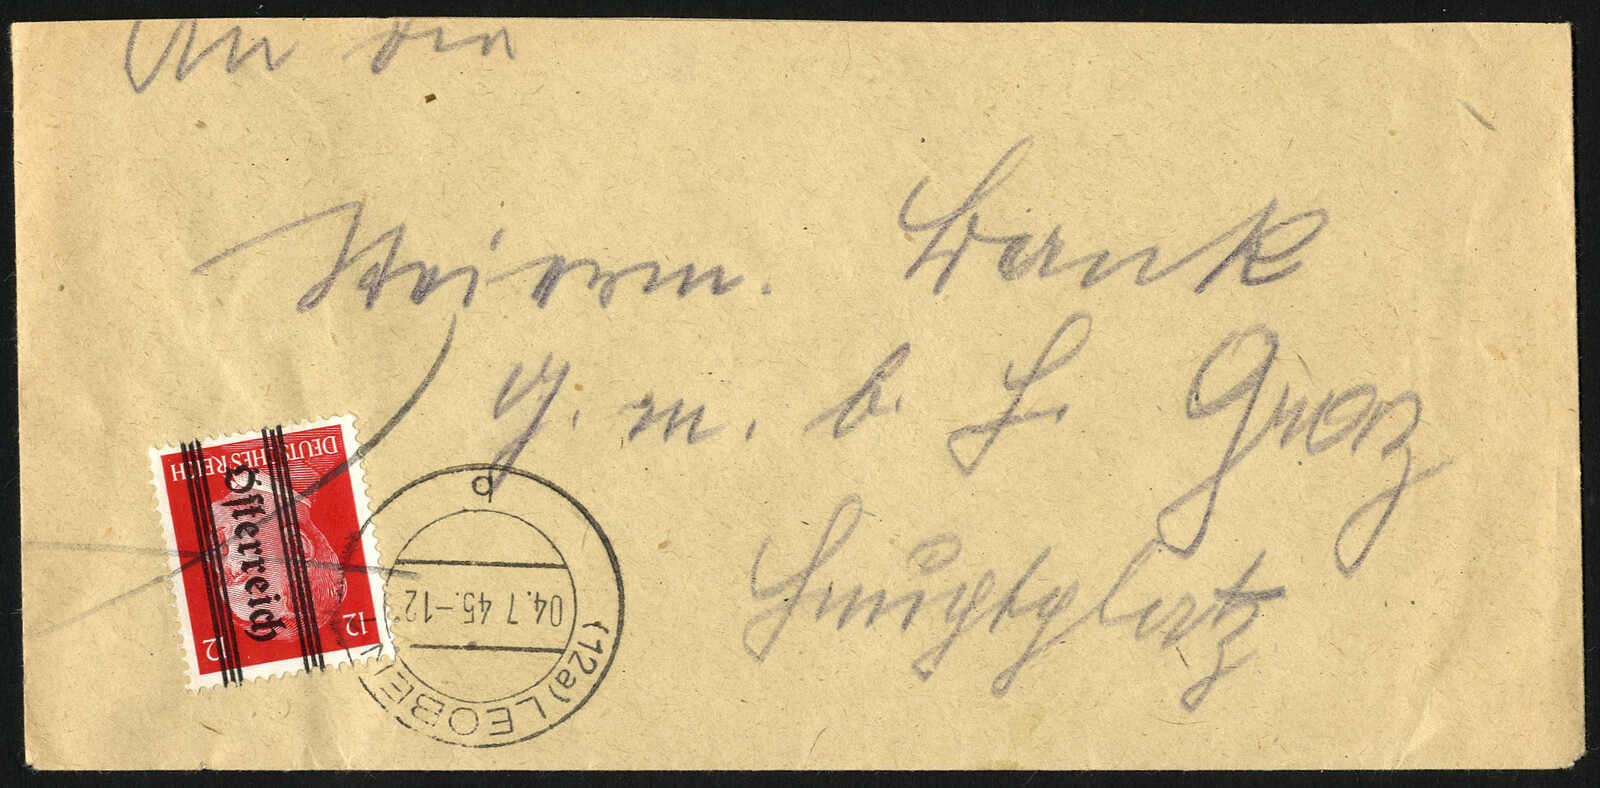 An die
Steierm. Bank
G. m. b. H. Graz
Hauptplatz
DEUTSCHES REICH
Österreich
12 12
(12a) LEOBEN
04.7 45.-12